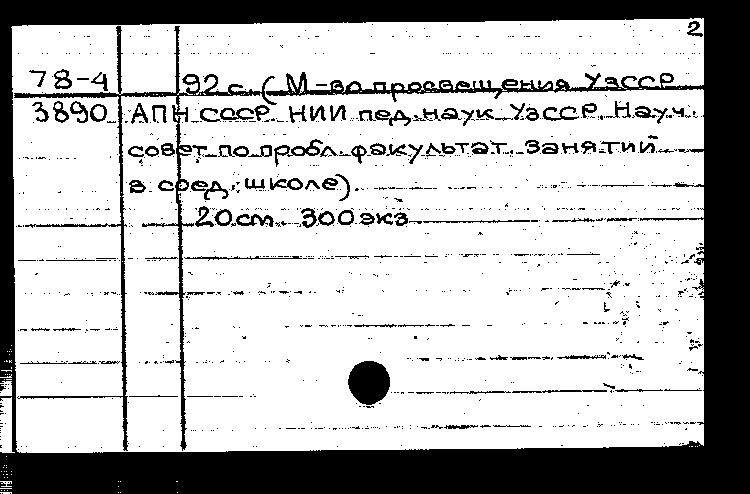 2
78-4 92 с. (М-во просвещения УзССР
3890 АПН СССР. НИИ пед. наук УзССР. Науч.
совет по пробл. факультат. занятий
в сред. школе).
20 ст. 300 экз